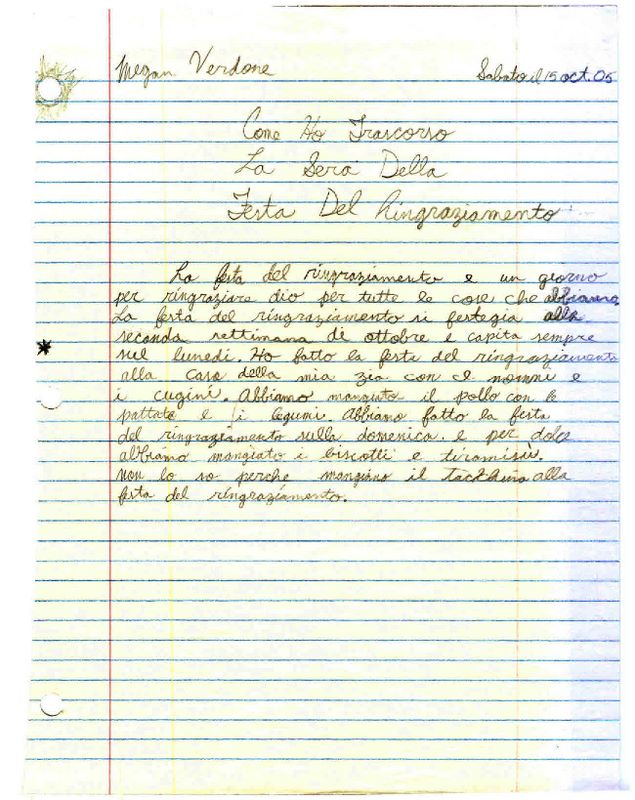 Megan Verdone
Sabato il 15 oct. 05
Come Ho Trascorso
La Sera Della
Festa Del Ringraziamento
La festa del ringraziamento e un giorno
per ringraziare dio per tutte le cose che abbiamo
La festa del ringraziamento si festegia alla
seconda settimana di ottobre e capita sempre
sul lunedi. Ho fatto la festa del ringraziamento
alla casa della mia zia con I nonni e
i cugini. Abbiamo mangiato il pollo con le
pattate e i legumi. Abbiamo fatto la festa
del ringraziamento sulla domenica. e per dolce
abbiamo mangiato i biscotti e tiramisù.
non lo so perche mangiano il tacchino alla
festa del ringraziamento.